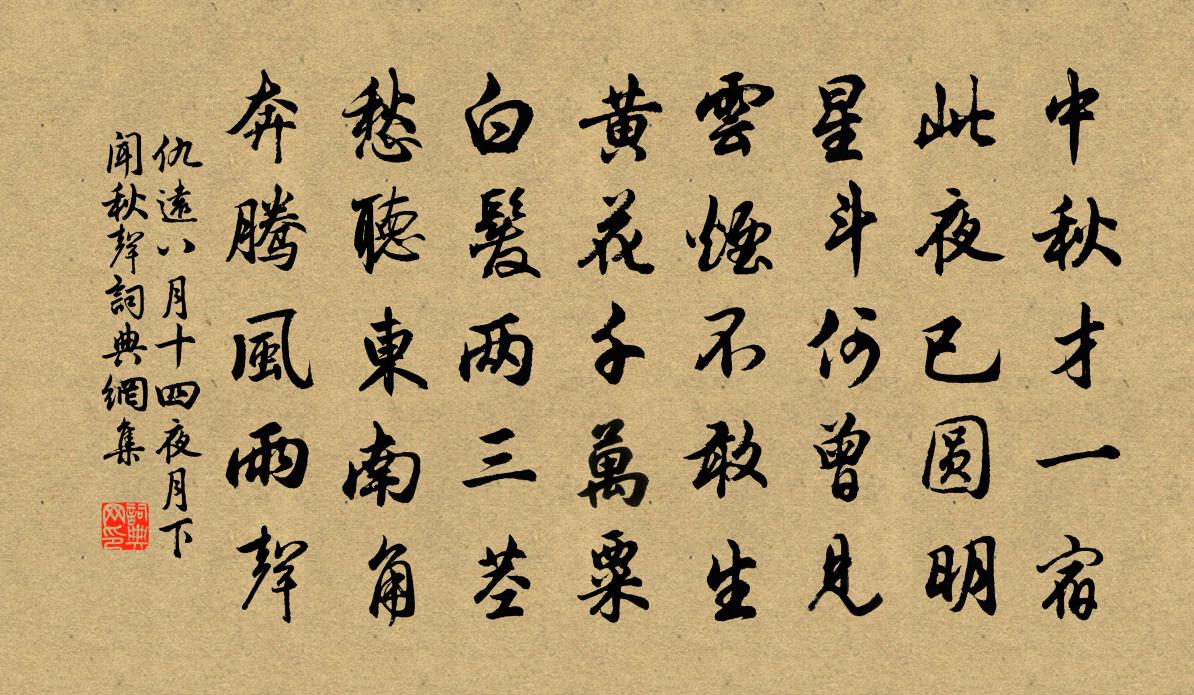 中秋才一宿
此夜已圆明
星斗何曾見
雲煙不敢生
黄花千萬粟
白髮两三茎
愁聽東南角
奔騰風雨聲
仇遠八月十四夜月下
闻秋聲詞典網集
詞典网印